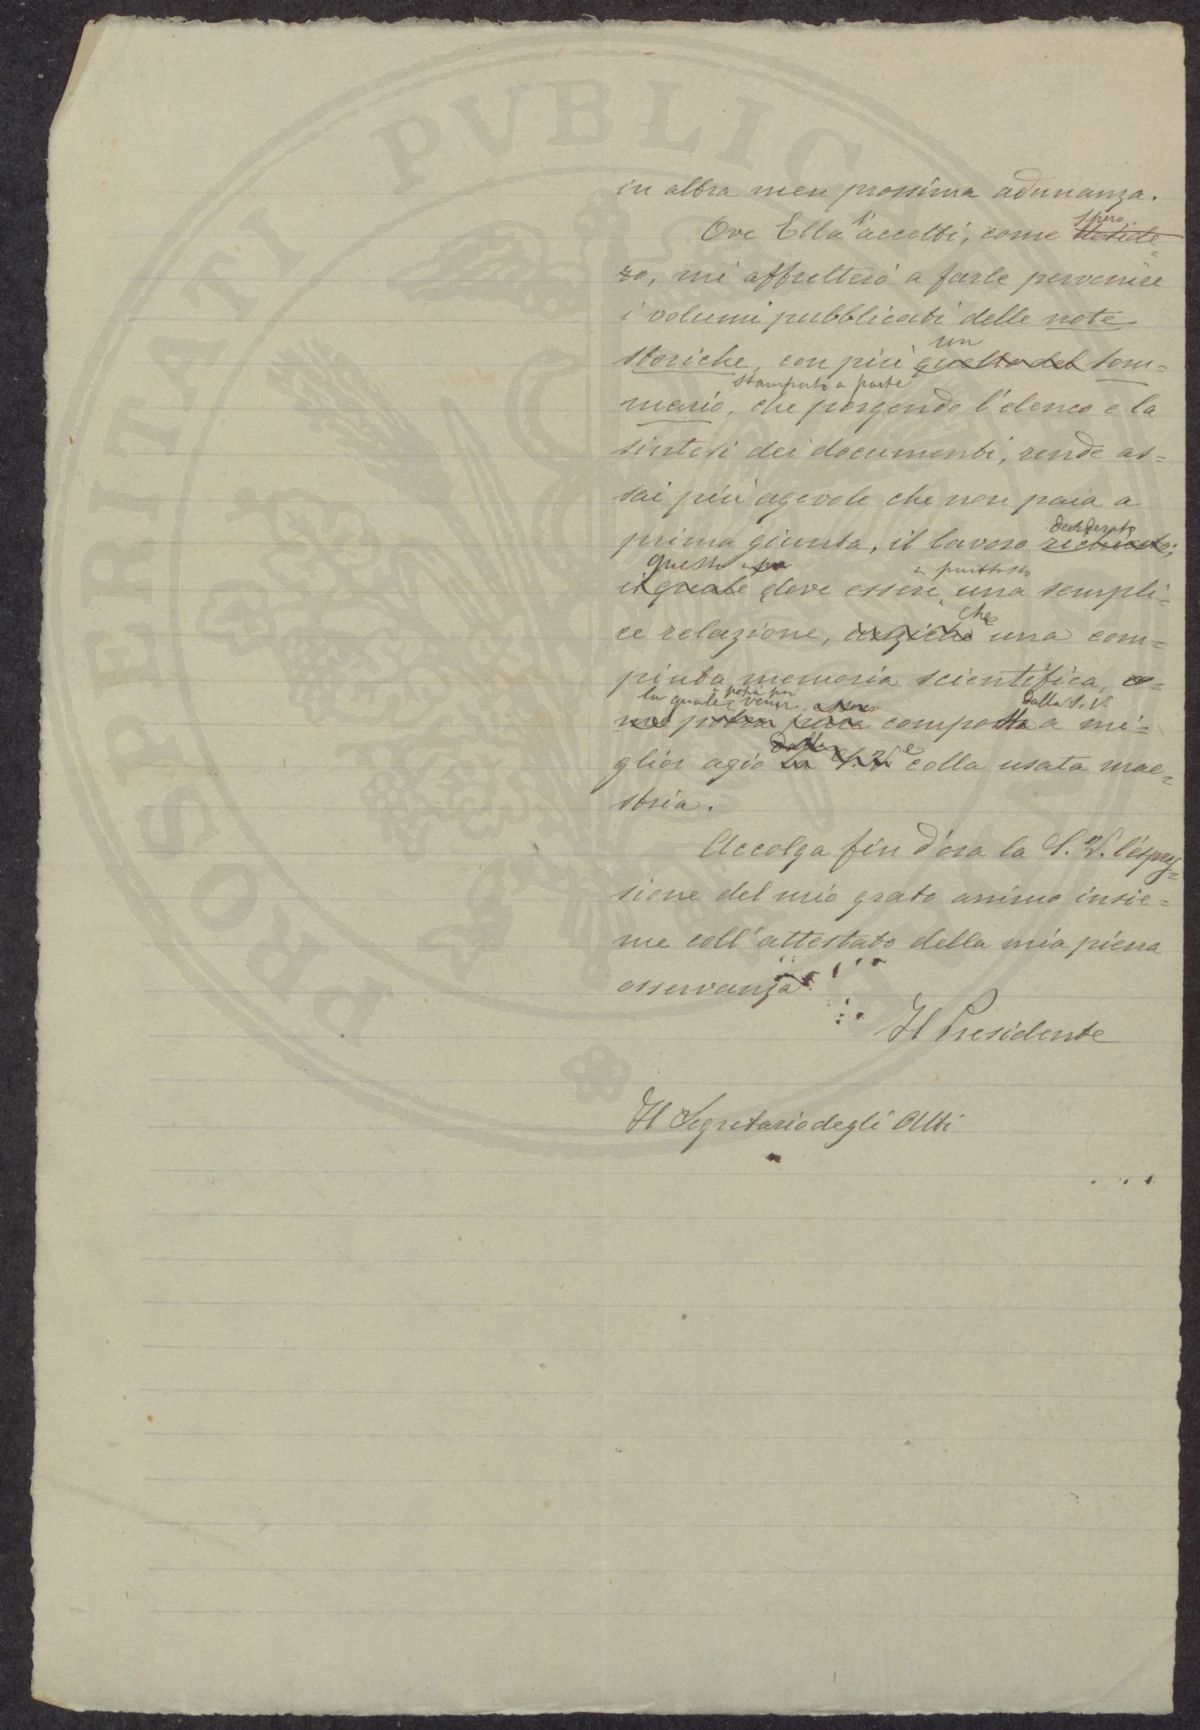 PROSPERITATI PVBLICAE
in altra men prossima adunanza.
Ove Ella l'accetti, come spero, deside=
ro, mi affretterò a farle pervenire
i volumi pubblicati delle note
storiche, con più un quello del Som=
mario, stampato a parte che porgendo l'elenco e la
sintesi dei documenti, rende as=
sai più agevole che non paia a
prima giunta, il lavoro desiderato richiesto;
questo il quale deve essere piuttosto una sempli=
ce relazione, anzichè che una com=
piuta memoria scientifica,
la quale potrà poi venir composta dalla S.V. a mi=
glior agio dalla La S.V. e colla usata mae=
stria.
Accolga fin d'ora la S.V. l'espres=
sione del mio grato animo insie=
me coll'attestato della mia piena
osservanza.
Il Presidente
Il Segretario degli Atti